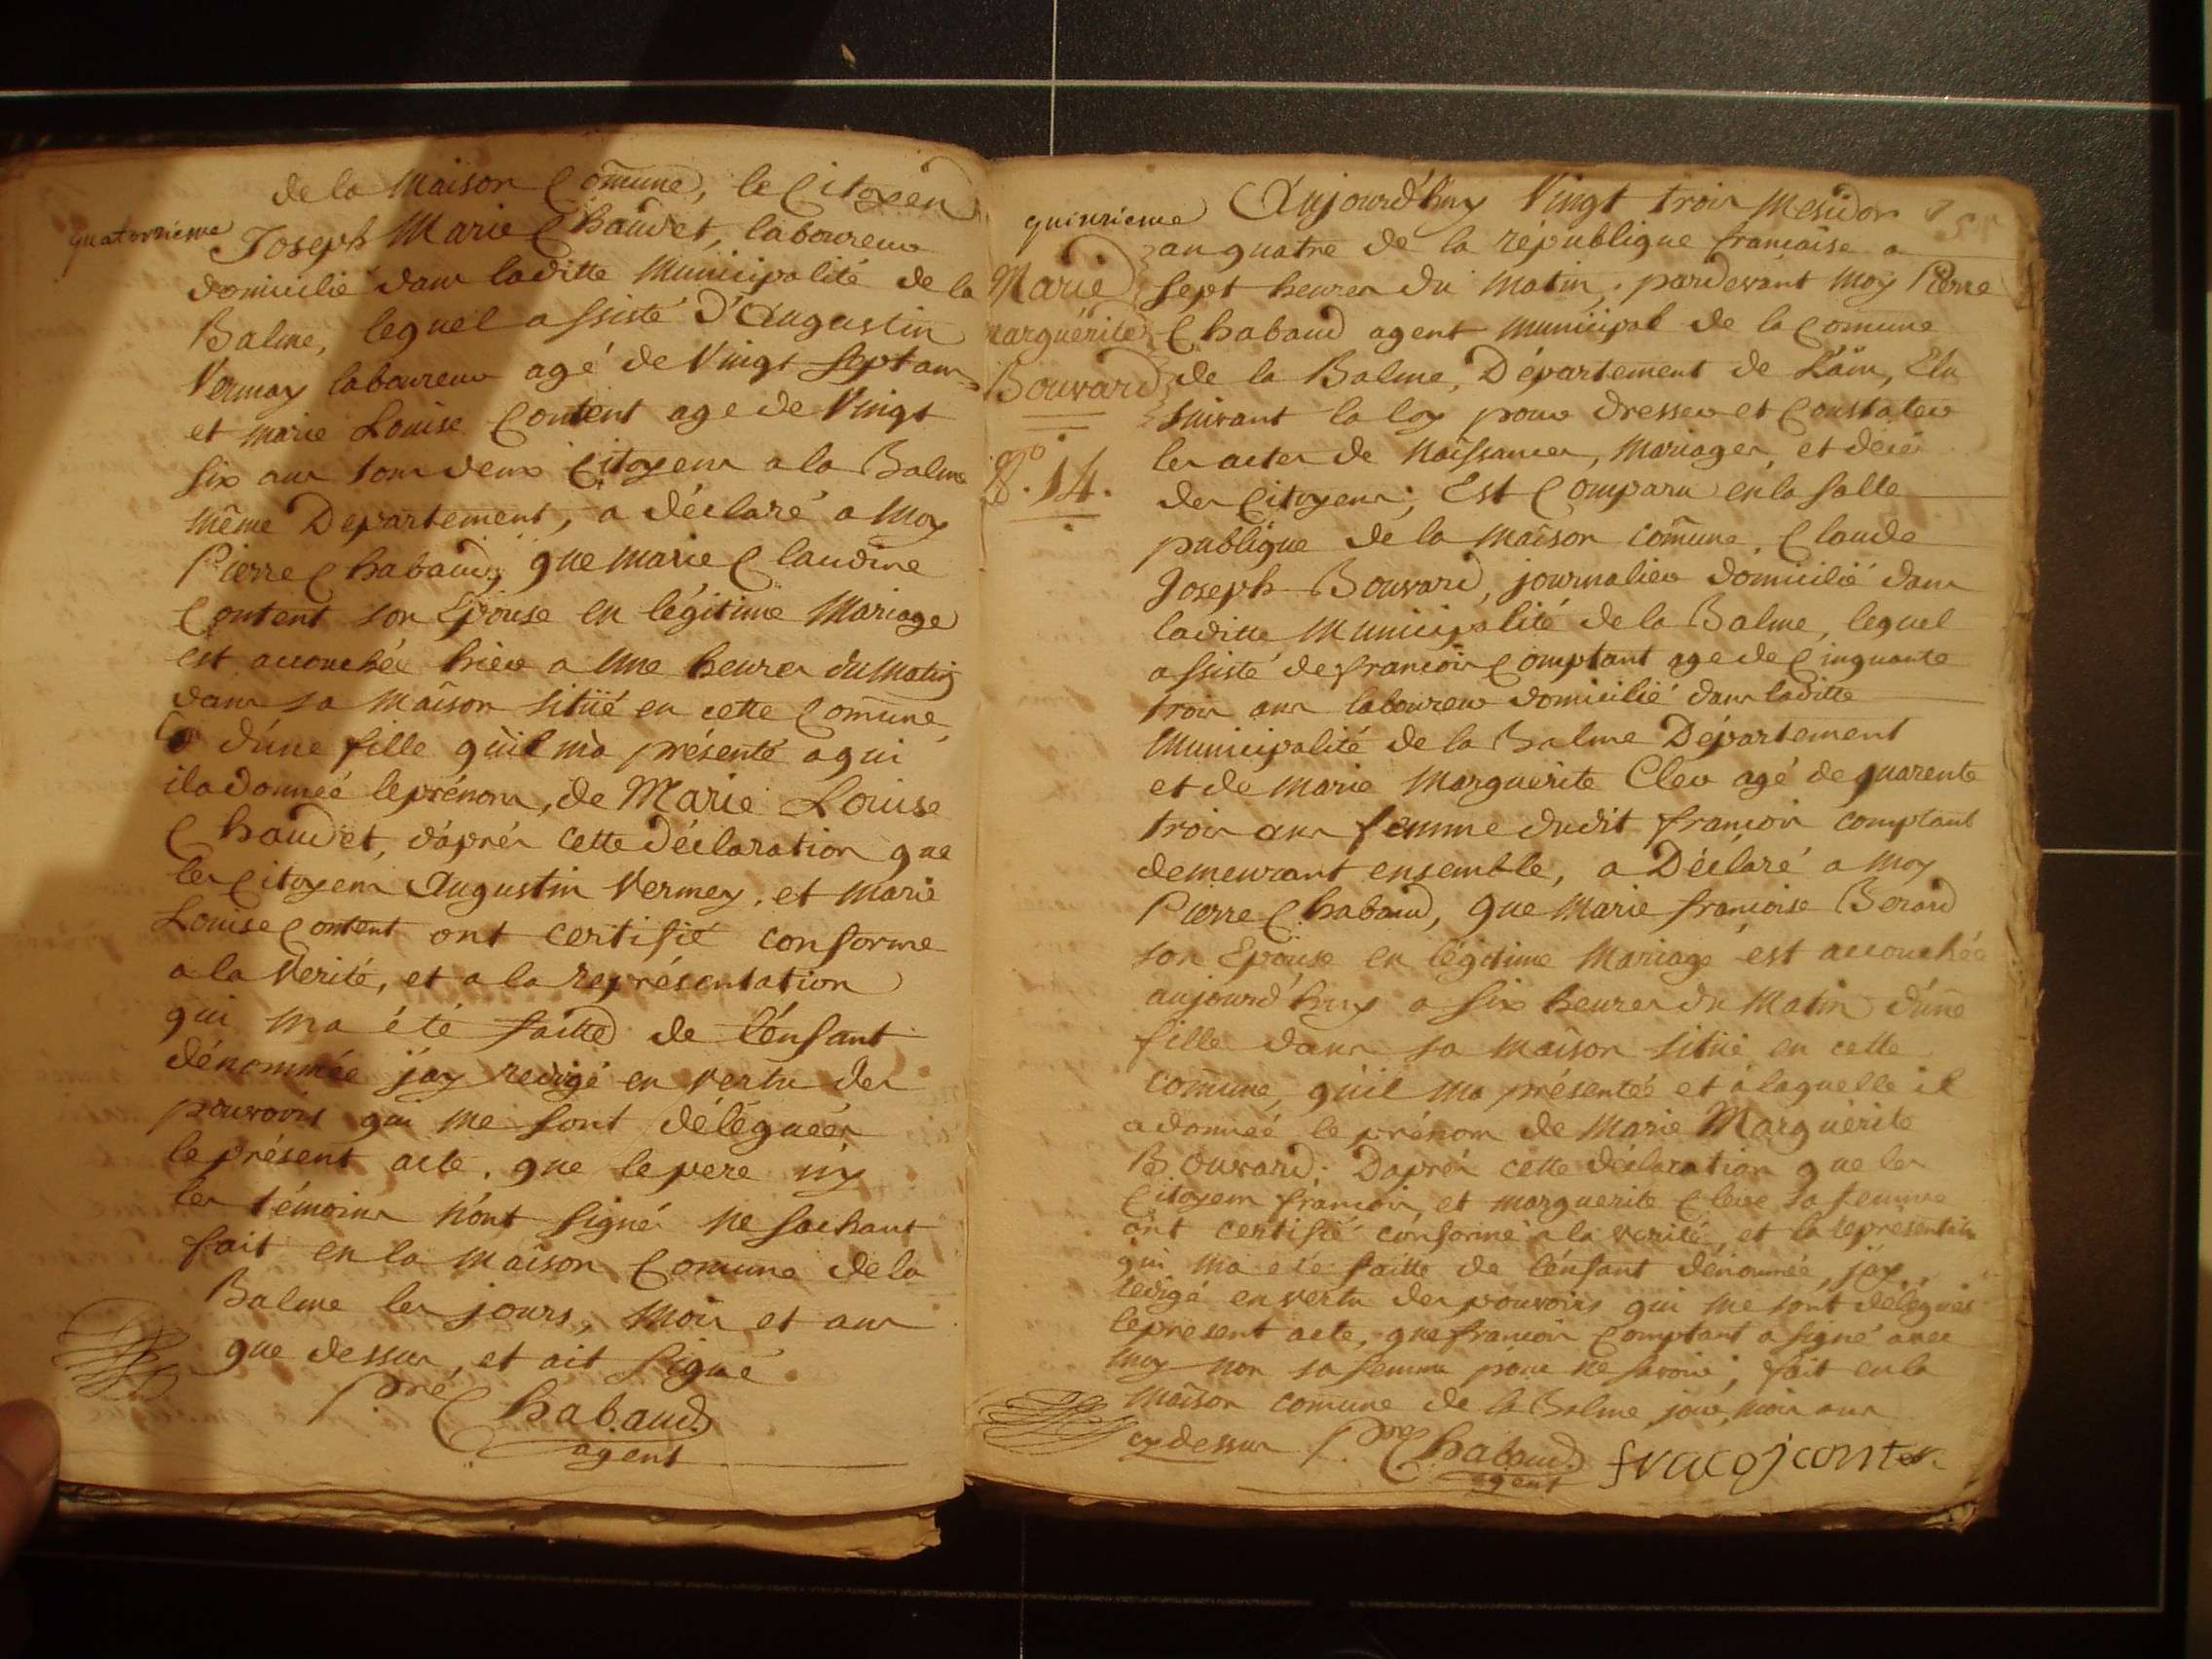 de la Maison Com̃une, le Citoyen
quatorzieme
Joseph Marie Chaudet, laboureur
domicilié dans laditte Municipalité de la
Balme, lequel assisté D'Augustin
Vermay laboureur agé de Vingt Sept ans
et marie Louise Content age de Vingt
six ans tous deux Citoyens a la Balme
même Departement, a déclaré a Moy
Pierre Chabaud, que marie Claudine
Content son Epouse en légitime Mariage
est accouchée hier a une heures du Matin
dans sa Maison sitüé en cette Com̃une,
d'une fille qu'il m'a présenté a qui
il a donneé le prénom, de Marie Louise
Chaudet, d'aprés cette Déclaration que
les Citoyens Augustin Vermey, et Marie
Louise Content ont certifié conforme
a la Verité, et a la représentation
qui m'a été faitte de l'énfant
dénommée j'ay redigé en vertu des
pouvoirs qui me sont déléguéés
le présent acte, que le pere ny
les témoins n'ont signés ne sachant
fait en la Maison Comune de la
Balme les jours, Mois et ans
que dessus, et ait Signé.
Pre Chabaud
agent
quinzieme
Aujourd'huy Vingt trois Mesidor
an quatre de la république francaise a
Marie
sept heures du Matin, pardevant Moy Pierre
Marguérite
Chabaud agent Municipal de la Comune
Bouvard
de la Balme, Département de L'ain, Elu
suivant la loy pour dresser et Constater
les actes de Naissances, Mariages, et decé
No. 14.
des Citoyens; Est Comparu en la Salle
publique de la Maison com̃une, Claude
Joseph Bouvard, journalier domicilié dans
laditte Municipalité de la Balme, lequel
assisté de francois Comptant age de Cinquante
trois ans laboureur domicilié dans laditte
Municipalité de la Balme Département
et de Marie Marguerite Cler agé de quarente
trois ans femme dudit francois comptant
demeurant ensemble, a Déclaré a Moy
Pierre Chabaud, que Marie francoise Berard
son Epouse en légitime Mariage est accouchée
aujourd'huy a six heures du Matin d'une
fille dans sa Maison sitüé en cette
com̃une, qu'il m'a présentée et a laquelle il
a donneé le prénom de Marie Marguérite
Bouvard. D'aprés cette déclaration que les
Citoyens francois, et marguerite Clere sa femme
ont certifié conforme a la verité, et la représentation
qui m'a été faitte de l'énfant dénommée, j'ay
redigé en vertu des pouvoirs qui me sont délégués
le present acte, que francois Comptant a signé avec
moy non sa femme pour ne savoir; fait en la
Maison comune de la Balme, jour, mois ans
cy dessus Pre Chabaud
agent